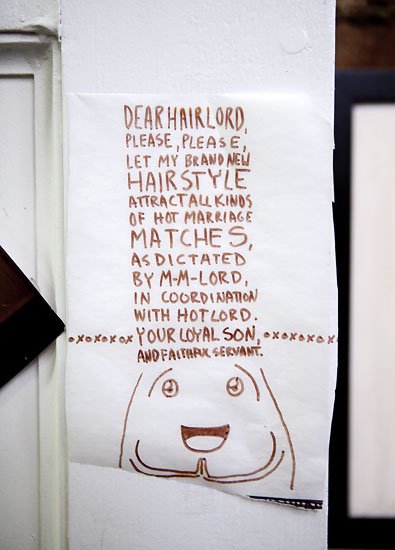 DEAR HAIR LORD,
PLEASE, PLEASE,
LET MY BRAND NEW
HAIRSTYLE
ATTRACT ALL KINDS
OF HOT MARRIAGE
MATCHES,
AS DICTATED
BY M-M-LORD,
IN COORDINATION
WITH HOT LORD.
oxoxoxox YOUR LOYAL SON, oxoxoxox
AND FAITHFUL SERVANT.